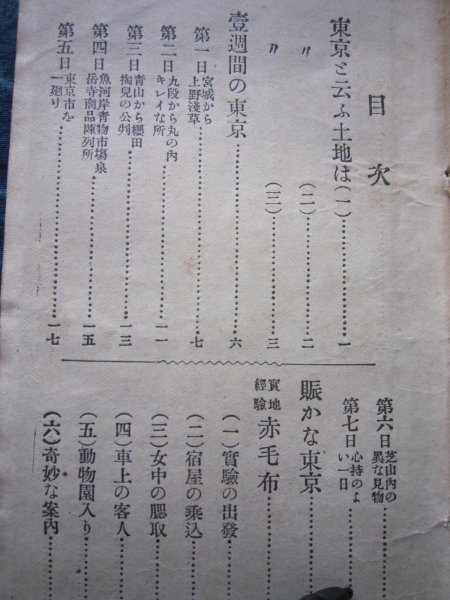 目次
東京と云ふ土地は(一)……一
〃 (二)……二
〃 (三)……三
壹週間の東京……六
第一日 宮城から上野淺草……七
第二日 九段から丸の內キレイな所……一一
第三日 青山から櫻田掏兒の公判……一三
第四日 魚河岸青物市場泉岳寺商品陳列所……一五
第五日 東京市を一廻り……一七
第六日 芝山內の異な見物……
第七日 心持のよい一日……
賑かな東京……
實地經驗 赤毛布
(一)實驗の出發……
(二)宿屋の乘込……
(三)女中の腮取……
(四)車上の客人……
(五)動物園入り……
(六)奇妙な案內……